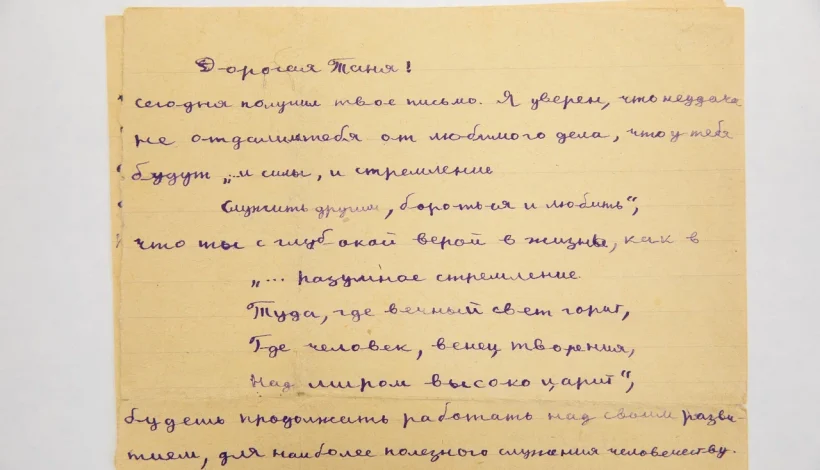 Дорогая Таня!
Сегодня получил твое письмо. Я уверен, что неудача
не отдалит тебя от любимого дела, что у тебя
будут „...и силы, и стремление
Служить другим, бороться и любить“,
что ты с глубокой верой в жизнь, как в
„... разумное стремление
Туда, где вечный свет горит,
Где человек, венец творения,
Над миром высоко царит“,
будешь продолжать работать над своим разви-
тием, для наиболее полезного служения человечеству.